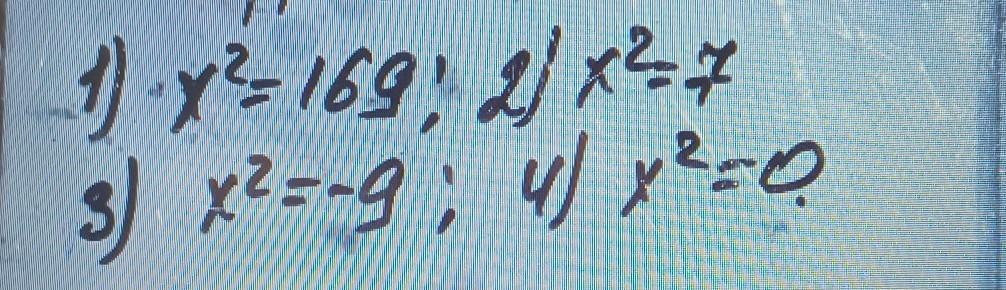 1) x²=169; 2) x²=7
3) x²=-9; 4) x²=0.